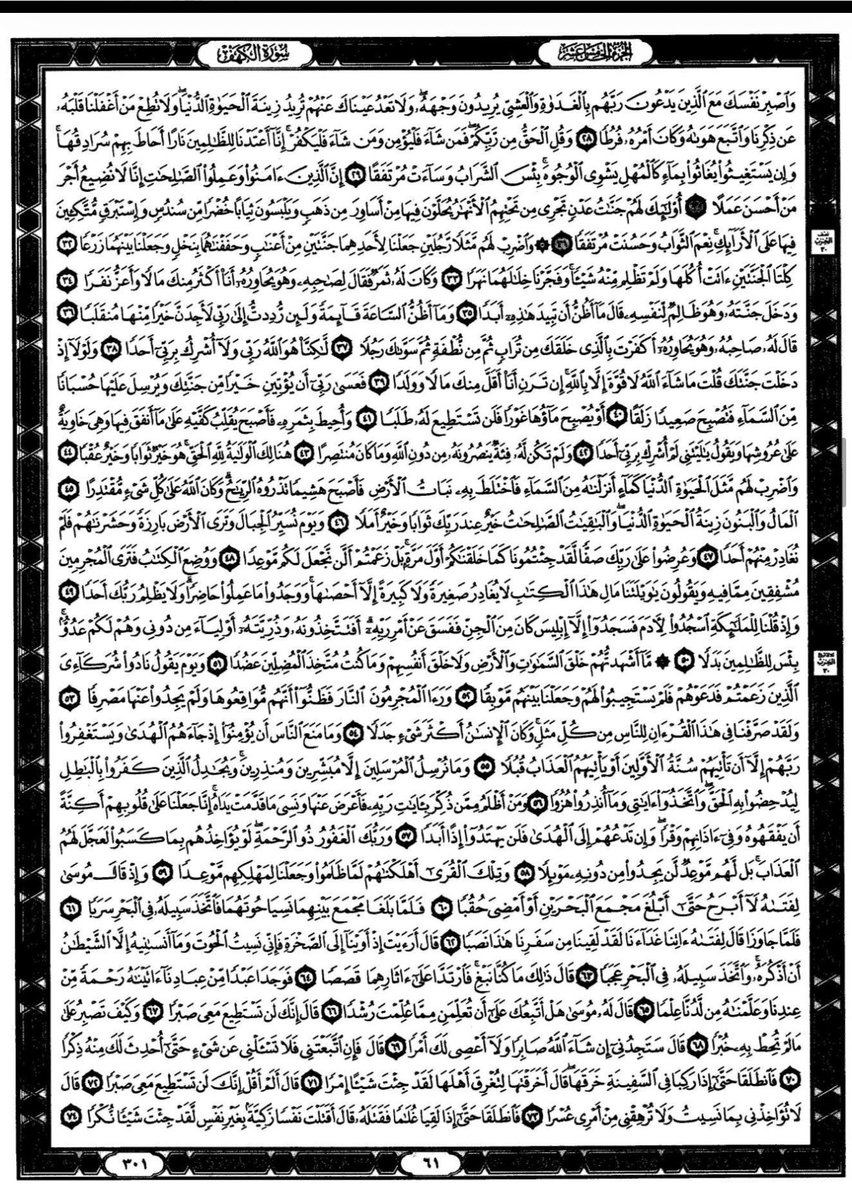 الجزء الخامس عشر
سورة الكهف
وَٱصْبِرْ نَفْسَكَ مَعَ ٱلَّذِينَ يَدْعُونَ رَبَّهُم بِٱلْغَدَوٰةِ وَٱلْعَشِىِّ يُرِيدُونَ وَجْهَهُۥ ۖ وَلَا تَعْدُ عَيْنَاكَ عَنْهُمْ تُرِيدُ زِينَةَ ٱلْحَيَوٰةِ ٱلدُّنْيَا ۖ وَلَا تُطِعْ مَنْ أَغْفَلْنَا قَلْبَهُۥ
عَن ذِكْرِنَا وَٱتَّبَعَ هَوَىٰهُ وَكَانَ أَمْرُهُۥ فُرُطًا ٢٨ وَقُلِ ٱلْحَقُّ مِن رَّبِّكُمْ ۖ فَمَن شَآءَ فَلْيُؤْمِن وَمَن شَآءَ فَلْيَكْفُرْ ۚ إِنَّآ أَعْتَدْنَا لِلظَّٰلِمِينَ نَارًا أَحَاطَ بِهِمْ سُرَادِقُهَا ۚ
وَإِن يَسْتَغِيثُوا۟ يُغَاثُوا۟ بِمَآءٍ كَٱلْمُهْلِ يَشْوِى ٱلْوُجُوهَ ۚ بِئْسَ ٱلشَّرَابُ وَسَآءَتْ مُرْتَفَقًا ٢٩ إِنَّ ٱلَّذِينَ ءَامَنُوا۟ وَعَمِلُوا۟ ٱلصَّٰلِحَٰتِ إِنَّا لَا نُضِيعُ أَجْرَ
مَنْ أَحْسَنَ عَمَلًا ٣٠ أُو۟لَٰٓئِكَ لَهُمْ جَنَّٰتُ عَدْنٍ تَجْرِى مِن تَحْتِهِمُ ٱلْأَنْهَٰرُ يُحَلَّوْنَ فِيهَا مِنْ أَسَاوِرَ مِن ذَهَبٍ وَيَلْبَسُونَ ثِيَابًا خُضْرًا مِّن سُندُسٍ وَإِسْتَبْرَقٍ مُّتَّكِـِٔينَ
فِيهَا عَلَى ٱلْأَرَآئِكِ ۚ نِعْمَ ٱلثَّوَابُ وَحَسُنَتْ مُرْتَفَقًا ٣١ ۞ وَٱضْرِبْ لَهُم مَّثَلًا رَّجُلَيْنِ جَعَلْنَا لِأَحَدِهِمَا جَنَّتَيْنِ مِنْ أَعْنَٰبٍ وَحَفَفْنَٰهُمَا بِنَخْلٍ وَجَعَلْنَا بَيْنَهُمَا زَرْعًا ٣٢
كِلْتَا ٱلْجَنَّتَيْنِ ءَاتَتْ أُكُلَهَا وَلَمْ تَظْلِم مِّنْهُ شَيْـًٔا ۚ وَفَجَّرْنَا خِلَٰلَهُمَا نَهَرًا ٣٣ وَكَانَ لَهُۥ ثَمَرٌ فَقَالَ لِصَٰحِبِهِۦ وَهُوَ يُحَاوِرُهُۥٓ أَنَا۠ أَكْثَرُ مِنكَ مَالًا وَأَعَزُّ نَفَرًا ٣٤
وَدَخَلَ جَنَّتَهُۥ وَهُوَ ظَالِمٌ لِّنَفْسِهِۦ قَالَ مَآ أَظُنُّ أَن تَبِيدَ هَٰذِهِۦٓ أَبَدًا ٣٥ وَمَآ أَظُنُّ ٱلسَّاعَةَ قَآئِمَةً وَلَئِن رُّدِدتُّ إِلَىٰ رَبِّى لَأَجِدَنَّ خَيْرًا مِّنْهَا مُنقَلَبًا ٣٦
قَالَ لَهُۥ صَاحِبُهُۥ وَهُوَ يُحَاوِرُهُۥٓ أَكَفَرْتَ بِٱلَّذِى خَلَقَكَ مِن تُرَابٍ ثُمَّ مِن نُّطْفَةٍ ثُمَّ سَوَّىٰكَ رَجُلًا ٣٧ لَّٰكِنَّا۠ هُوَ ٱللَّهُ رَبِّى وَلَآ أُشْرِكُ بِرَبِّىٓ أَحَدًا ٣٨ وَلَوْلَآ إِذْ
دَخَلْتَ جَنَّتَكَ قُلْتَ مَا شَآءَ ٱللَّهُ لَا قُوَّةَ إِلَّا بِٱللَّهِ ۚ إِن تَرَنِ أَنَا۠ أَقَلَّ مِنكَ مَالًا وَوَلَدًا ٣٩ فَعَسَىٰ رَبِّىٓ أَن يُؤْتِيَنِ خَيْرًا مِّن جَنَّتِكَ وَيُرْسِلَ عَلَيْهَا حُسْبَانًا
مِّنَ ٱلسَّمَآءِ فَتُصْبِحَ صَعِيدًا زَلَقًا ٤٠ أَوْ يُصْبِحَ مَآؤُهَا غَوْرًا فَلَن تَسْتَطِيعَ لَهُۥ طَلَبًا ٤١ وَأُحِيطَ بِثَمَرِهِۦ فَأَصْبَحَ يُقَلِّبُ كَفَّيْهِ عَلَىٰ مَآ أَنفَقَ فِيهَا وَهِىَ خَاوِيَةٌ
عَلَىٰ عُرُوشِهَا وَيَقُولُ يَٰلَيْتَنِى لَمْ أُشْرِكْ بِرَبِّىٓ أَحَدًا ٤٢ وَلَمْ تَكُن لَّهُۥ فِئَةٌ يَنصُرُونَهُۥ مِن دُونِ ٱللَّهِ وَمَا كَانَ مُنتَصِرًا ٤٣ هُنَالِكَ ٱلْوَلَٰيَةُ لِلَّهِ ٱلْحَقِّ ۚ هُوَ خَيْرٌ ثَوَابًا وَخَيْرٌ عُقْبًا ٤٤
وَٱضْرِبْ لَهُم مَّثَلَ ٱلْحَيَوٰةِ ٱلدُّنْيَا كَمَآءٍ أَنزَلْنَٰهُ مِنَ ٱلسَّمَآءِ فَٱخْتَلَطَ بِهِۦ نَبَاتُ ٱلْأَرْضِ فَأَصْبَحَ هَشِيمًا تَذْرُوهُ ٱلرِّيَٰحُ ۗ وَكَانَ ٱللَّهُ عَلَىٰ كُلِّ شَىْءٍ مُّقْتَدِرًا ٤٥
ٱلْمَالُ وَٱلْبَنُونَ زِينَةُ ٱلْحَيَوٰةِ ٱلدُّنْيَا ۖ وَٱلْبَٰقِيَٰتُ ٱلصَّٰلِحَٰتُ خَيْرٌ عِندَ رَبِّكَ ثَوَابًا وَخَيْرٌ أَمَلًا ٤٦ وَيَوْمَ نُسَيِّرُ ٱلْجِبَالَ وَتَرَى ٱلْأَرْضَ بَارِزَةً وَحَشَرْنَٰهُمْ فَلَمْ
نُغَادِرْ مِنْهُمْ أَحَدًا ٤٧ وَعُرِضُوا۟ عَلَىٰ رَبِّكَ صَفًّا لَّقَدْ جِئْتُمُونَا كَمَا خَلَقْنَٰكُمْ أَوَّلَ مَرَّةٍۭ ۚ بَلْ زَعَمْتُمْ أَلَّن نَّجْعَلَ لَكُم مَّوْعِدًا ٤٨ وَوُضِعَ ٱلْكِتَٰبُ فَتَرَى ٱلْمُجْرِمِينَ
مُشْفِقِينَ مِمَّا فِيهِ وَيَقُولُونَ يَٰوَيْلَتَنَا مَالِ هَٰذَا ٱلْكِتَٰبِ لَا يُغَادِرُ صَغِيرَةً وَلَا كَبِيرَةً إِلَّآ أَحْصَىٰهَا ۚ وَوَجَدُوا۟ مَا عَمِلُوا۟ حَاضِرًا ۗ وَلَا يَظْلِمُ رَبُّكَ أَحَدًا ٤٩
وَإِذْ قُلْنَا لِلْمَلَٰٓئِكَةِ ٱسْجُدُوا۟ لِءَادَمَ فَسَجَدُوٓا۟ إِلَّآ إِبْلِيسَ كَانَ مِنَ ٱلْجِنِّ فَفَسَقَ عَنْ أَمْرِ رَبِّهِۦٓ ۗ أَفَتَتَّخِذُونَهُۥ وَذُرِّيَّتَهُۥٓ أَوْلِيَآءَ مِن دُونِى وَهُمْ لَكُمْ عَدُوٌّۢ ۚ
بِئْسَ لِلظَّٰلِمِينَ بَدَلًا ٥٠ ۞ مَّآ أَشْهَدتُّهُمْ خَلْقَ ٱلسَّمَٰوَٰتِ وَٱلْأَرْضِ وَلَا خَلْقَ أَنفُسِهِمْ وَمَا كُنتُ مُتَّخِذَ ٱلْمُضِلِّينَ عَضُدًا ٥١ وَيَوْمَ يَقُولُ نَادُوا۟ شُرَكَآءِىَ
ٱلَّذِينَ زَعَمْتُمْ فَدَعَوْهُمْ فَلَمْ يَسْتَجِيبُوا۟ لَهُمْ وَجَعَلْنَا بَيْنَهُم مَّوْبِقًا ٥٢ وَرَءَا ٱلْمُجْرِمُونَ ٱلنَّارَ فَظَنُّوٓا۟ أَنَّهُم مُّوَاقِعُوهَا وَلَمْ يَجِدُوا۟ عَنْهَا مَصْرِفًا ٥٣
وَلَقَدْ صَرَّفْنَا فِى هَٰذَا ٱلْقُرْءَانِ لِلنَّاسِ مِن كُلِّ مَثَلٍ ۚ وَكَانَ ٱلْإِنسَٰنُ أَكْثَرَ شَىْءٍ جَدَلًا ٥٤ وَمَا مَنَعَ ٱلنَّاسَ أَن يُؤْمِنُوٓا۟ إِذْ جَآءَهُمُ ٱلْهُدَىٰ وَيَسْتَغْفِرُوا۟
رَبَّهُمْ إِلَّآ أَن تَأْتِيَهُمْ سُنَّةُ ٱلْأَوَّلِينَ أَوْ يَأْتِيَهُمُ ٱلْعَذَابُ قُبُلًا ٥٥ وَمَا نُرْسِلُ ٱلْمُرْسَلِينَ إِلَّا مُبَشِّرِينَ وَمُنذِرِينَ ۚ وَيُجَٰدِلُ ٱلَّذِينَ كَفَرُوا۟ بِٱلْبَٰطِلِ
لِيُدْحِضُوا۟ بِهِ ٱلْحَقَّ ۖ وَٱتَّخَذُوٓا۟ ءَايَٰتِى وَمَآ أُنذِرُوا۟ هُزُوًا ٥٦ وَمَنْ أَظْلَمُ مِمَّن ذُكِّرَ بِـَٔايَٰتِ رَبِّهِۦ فَأَعْرَضَ عَنْهَا وَنَسِىَ مَا قَدَّمَتْ يَدَاهُ ۚ إِنَّا جَعَلْنَا عَلَىٰ قُلُوبِهِمْ أَكِنَّةً
أَن يَفْقَهُوهُ وَفِىٓ ءَاذَانِهِمْ وَقْرًا ۖ وَإِن تَدْعُهُمْ إِلَى ٱلْهُدَىٰ فَلَن يَهْتَدُوٓا۟ إِذًا أَبَدًا ٥٧ وَرَبُّكَ ٱلْغَفُورُ ذُو ٱلرَّحْمَةِ ۖ لَوْ يُؤَاخِذُهُم بِمَا كَسَبُوا۟ لَعَجَّلَ لَهُمُ
ٱلْعَذَابَ ۚ بَل لَّهُم مَّوْعِدٌ لَّن يَجِدُوا۟ مِن دُونِهِۦ مَوْئِلًا ٥٨ وَتِلْكَ ٱلْقُرَىٰٓ أَهْلَكْنَٰهُمْ لَمَّا ظَلَمُوا۟ وَجَعَلْنَا لِمَهْلِكِهِم مَّوْعِدًا ٥٩ وَإِذْ قَالَ مُوسَىٰ
لِفَتَىٰهُ لَآ أَبْرَحُ حَتَّىٰٓ أَبْلُغَ مَجْمَعَ ٱلْبَحْرَيْنِ أَوْ أَمْضِىَ حُقُبًا ٦٠ فَلَمَّا بَلَغَا مَجْمَعَ بَيْنِهِمَا نَسِيَا حُوتَهُمَا فَٱتَّخَذَ سَبِيلَهُۥ فِى ٱلْبَحْرِ سَرَبًا ٦١
فَلَمَّا جَاوَزَا قَالَ لِفَتَىٰهُ ءَاتِنَا غَدَآءَنَا لَقَدْ لَقِينَا مِن سَفَرِنَا هَٰذَا نَصَبًا ٦٢ قَالَ أَرَءَيْتَ إِذْ أَوَيْنَآ إِلَى ٱلصَّخْرَةِ فَإِنِّى نَسِيتُ ٱلْحُوتَ وَمَآ أَنسَىٰنِيهُ إِلَّا ٱلشَّيْطَٰنُ
أَنْ أَذْكُرَهُۥ ۚ وَٱتَّخَذَ سَبِيلَهُۥ فِى ٱلْبَحْرِ عَجَبًا ٦٣ قَالَ ذَٰلِكَ مَا كُنَّا نَبْغِ ۚ فَٱرْتَدَّا عَلَىٰٓ ءَاثَارِهِمَا قَصَصًا ٦٤ فَوَجَدَا عَبْدًا مِّنْ عِبَادِنَآ ءَاتَيْنَٰهُ رَحْمَةً مِّنْ
عِندِنَا وَعَلَّمْنَٰهُ مِن لَّدُنَّا عِلْمًا ٦٥ قَالَ لَهُۥ مُوسَىٰ هَلْ أَتَّبِعُكَ عَلَىٰٓ أَن تُعَلِّمَنِ مِمَّا عُلِّمْتَ رُشْدًا ٦٦ قَالَ إِنَّكَ لَن تَسْتَطِيعَ مَعِىَ صَبْرًا ٦٧ وَكَيْفَ تَصْبِرُ عَلَىٰ
مَا لَمْ تُحِطْ بِهِۦ خُبْرًا ٦٨ قَالَ سَتَجِدُنِىٓ إِن شَآءَ ٱللَّهُ صَابِرًا وَلَآ أَعْصِى لَكَ أَمْرًا ٦٩ قَالَ فَإِنِ ٱتَّبَعْتَنِى فَلَا تَسْـَٔلْنِى عَن شَىْءٍ حَتَّىٰٓ أُحْدِثَ لَكَ مِنْهُ ذِكْرًا
٧٠ فَٱنطَلَقَا حَتَّىٰٓ إِذَا رَكِبَا فِى ٱلسَّفِينَةِ خَرَقَهَا ۖ قَالَ أَخَرَقْتَهَا لِتُغْرِقَ أَهْلَهَا لَقَدْ جِئْتَ شَيْـًٔا إِمْرًا ٧١ قَالَ أَلَمْ أَقُلْ إِنَّكَ لَن تَسْتَطِيعَ مَعِىَ صَبْرًا ٧٢ قَالَ
لَا تُؤَاخِذْنِى بِمَا نَسِيتُ وَلَا تُرْهِقْنِى مِنْ أَمْرِى عُسْرًا ٧٣ فَٱنطَلَقَا حَتَّىٰٓ إِذَا لَقِيَا غُلَٰمًا فَقَتَلَهُۥ قَالَ أَقَتَلْتَ نَفْسًا زَكِيَّةًۢ بِغَيْرِ نَفْسٍ لَّقَدْ جِئْتَ شَيْـًٔا نُّكْرًا ٧٤
٦١
٣٠١